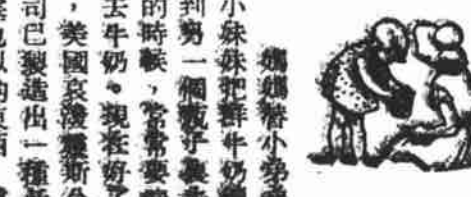 媽媽替小弟
小妹妹把鮮牛奶
到另一個瓶子裏
的時候，常常要
去牛奶。現在好了
，美國哀潑羅斯公
司已製造出一種